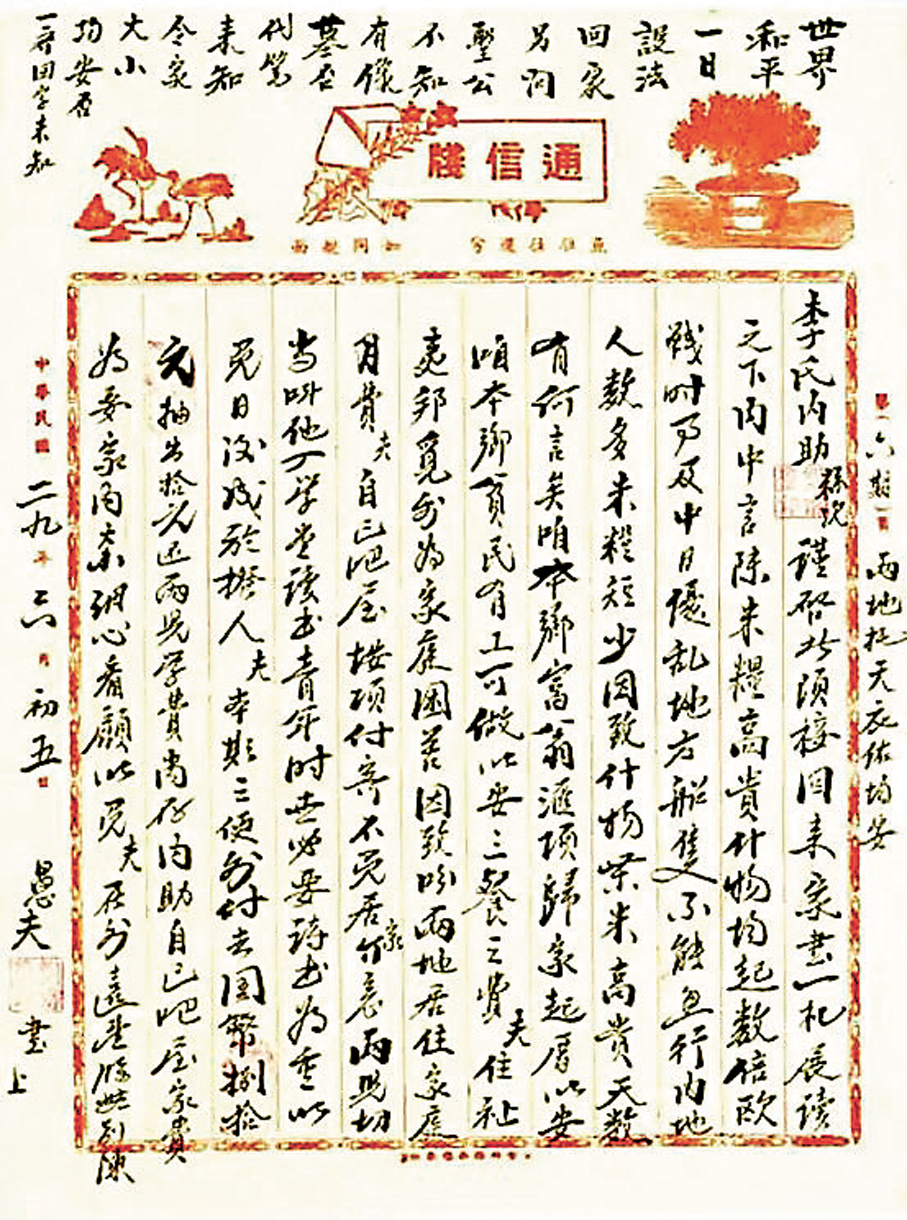 世界
和平
一日
設法
回家
另詢
聖公
不知
有修
墓否
代筆
來知
令家
大小
均安否
一齊回字來知
通信牋
如同
兩地托天庇佑均安
李氏內助 謹啓者頃接回來家書一札展讀
之下內中言陳米糧高貴什物均起數倍歐
戰時局及中日擾亂地方船隻不能通行內地
人數多米糧短少因致什物柴米高貴天數
有何言矣咱本鄉富翁滙項歸家起厝以安
咱本鄉貧民有工可做以安三餐之費夫住
邦覓利為家庭困苦因致吩兩地居住家庭
月費夫自己吧屋撥項付寄不免居家介意兩兒切
當叫他入學堂讀书青年时世必要詩书為重以
免日後残於據人夫本期之便外付去国幣捌拾
元抽出拾元还兩兒学費尚存內助自己吧屋家費
為要家內 細心看顧以免夫在外遠望
中華民國二九年六月初五日
愚夫
書上